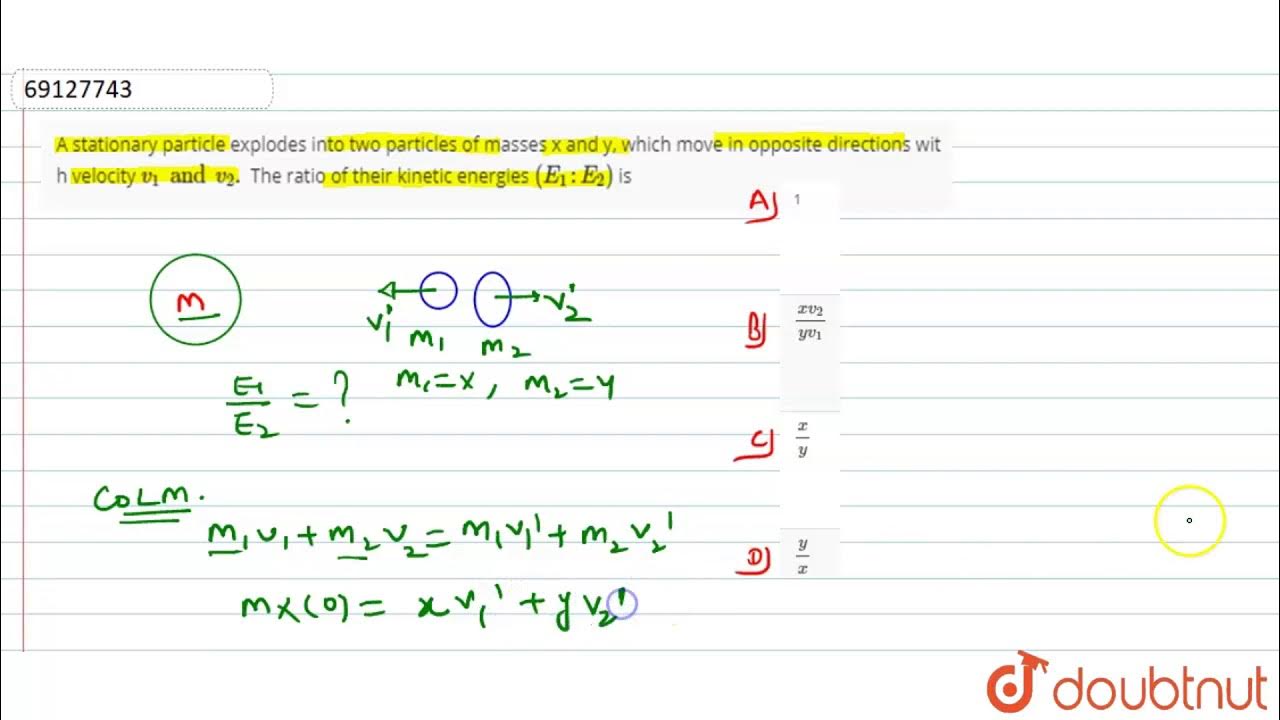 69127743
A stationary particle explodes into two particles of masses x and y, which move in opposite directions wit
h velocity v₁ and v₂. The ratio of their kinetic energies (E₁ : E₂) is
A) 1
M
v₁' m₁ m₂ v₂'
B) xv₂/yv₁
E₁/E₂ = ?
m₁=x, m₂=y
C) x/y
COLM.
m₁v₁ + m₂v₂ = m₁v₁' + m₂v₂'
D) y/x
m×(0) = xv₁' + yv₂'
doubtnut